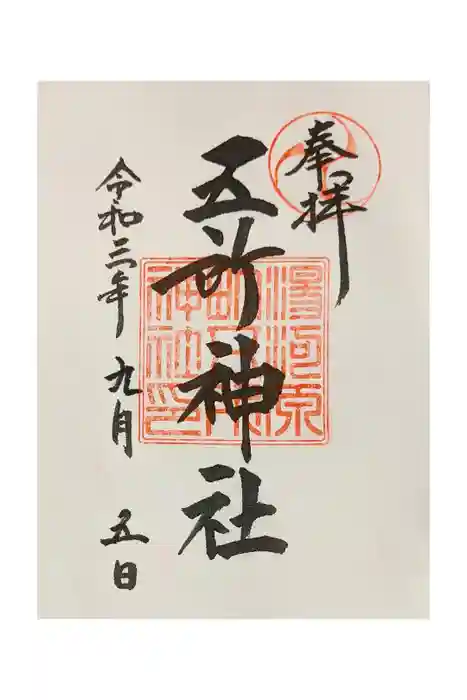 奉拝
五所神社
湯河原
神社印
令和三年九月五日